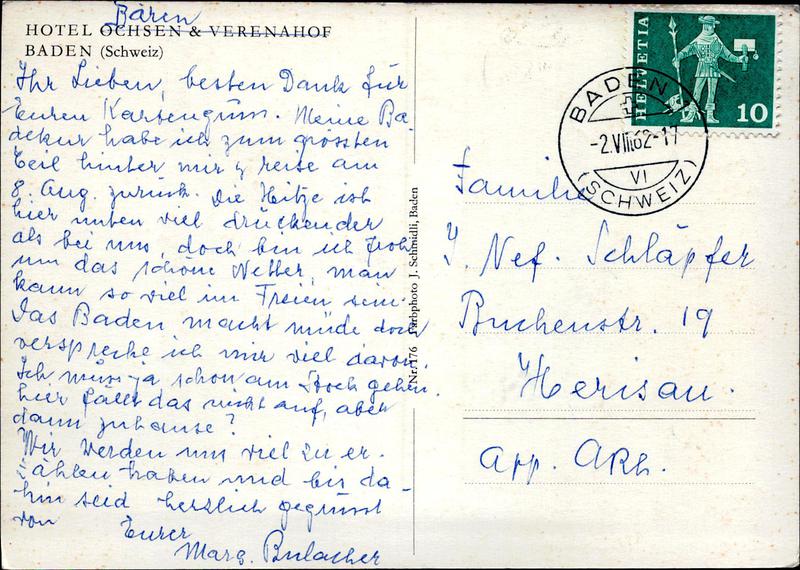 Bären
HOTEL OCHSEN & VERENAHOF
BADEN (Schweiz)
Ihr Lieben, besten Dank für
Euren Kartengruss. Meine Ba-
dekur habe ich zum grössten
Teil hinter mir & reise am
8. Aug. zurück. Die Hitze ist
hier unten viel drückender
als bei uns, doch bin ich froh
um das schöne Wetter, man
kann so viel im Freien sein.
Das Baden macht müde doch
verspreche ich mir viel davon.
Ich muss ja schon am Stock gehen.
hier fällt das nicht auf, aber
dann zuhause?
Wir werden uns viel zu er-
zählen haben und bis da-
hin seid herzlich gegrüsst
von Eurer
Marg.
Nr. 176 Farbphoto J. Schmidli, Baden
HELVETIA
10
BADEN
-2.VIII.62-17
VI
(SCHWEIZ)
Familie
J. Nef. Schläpfer
Buchenstr. 19
Herisau.
App. ARh.